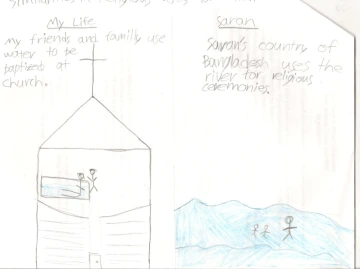 My Life
my friends and family use
water to be
baptized at
church.
Saran
Saran's country of
Bangladesh uses the
river for religious
ceremonies